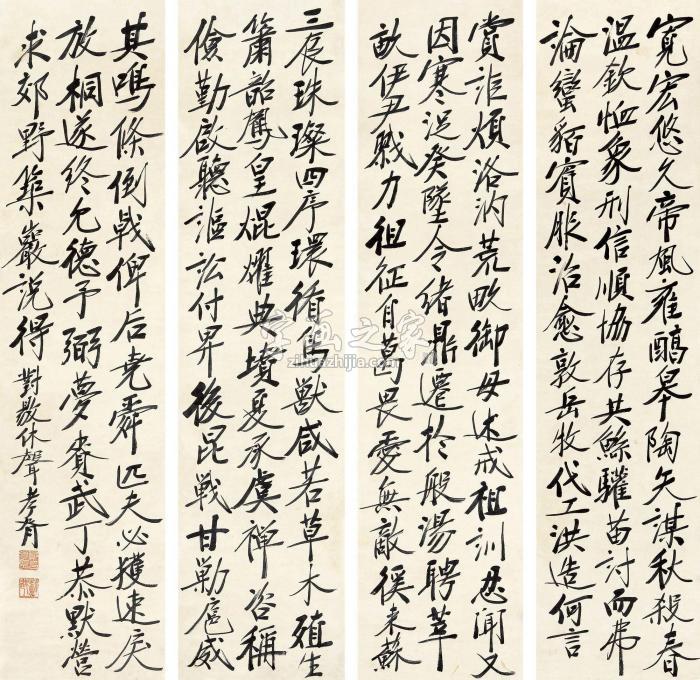 寬宏悠久帝風雍醑皋陶矢謨秋殺春
溫欽恤象刑信順協存共鯀驩苗討而弗
論蠻貊賓服治愈敦岳牧代工洪造何言
賞誰煩洛汭荒畋御母述戒祖訓忍聞又
因寒浞癸墜令緒鼎遷於殷湯聘莘
畝伊尹戮力徂征自葛畏愛無敵徯來蘇
三辰珠璨四序環循鳥獸咸若草木殖生
簫韶鳳皇焜燿典墳夏承虞禪咨稱
儉勤啟聽謳訟付畀後昆戰甘勦扈威
其鳴條倒戟俾后堯舜匹夫必獲速戾
放桐遂終允德予弼夢賚武丁恭默營
求郊野築巖說得 對敭休聲 孝胥
字画之家
zihuazhijia.com